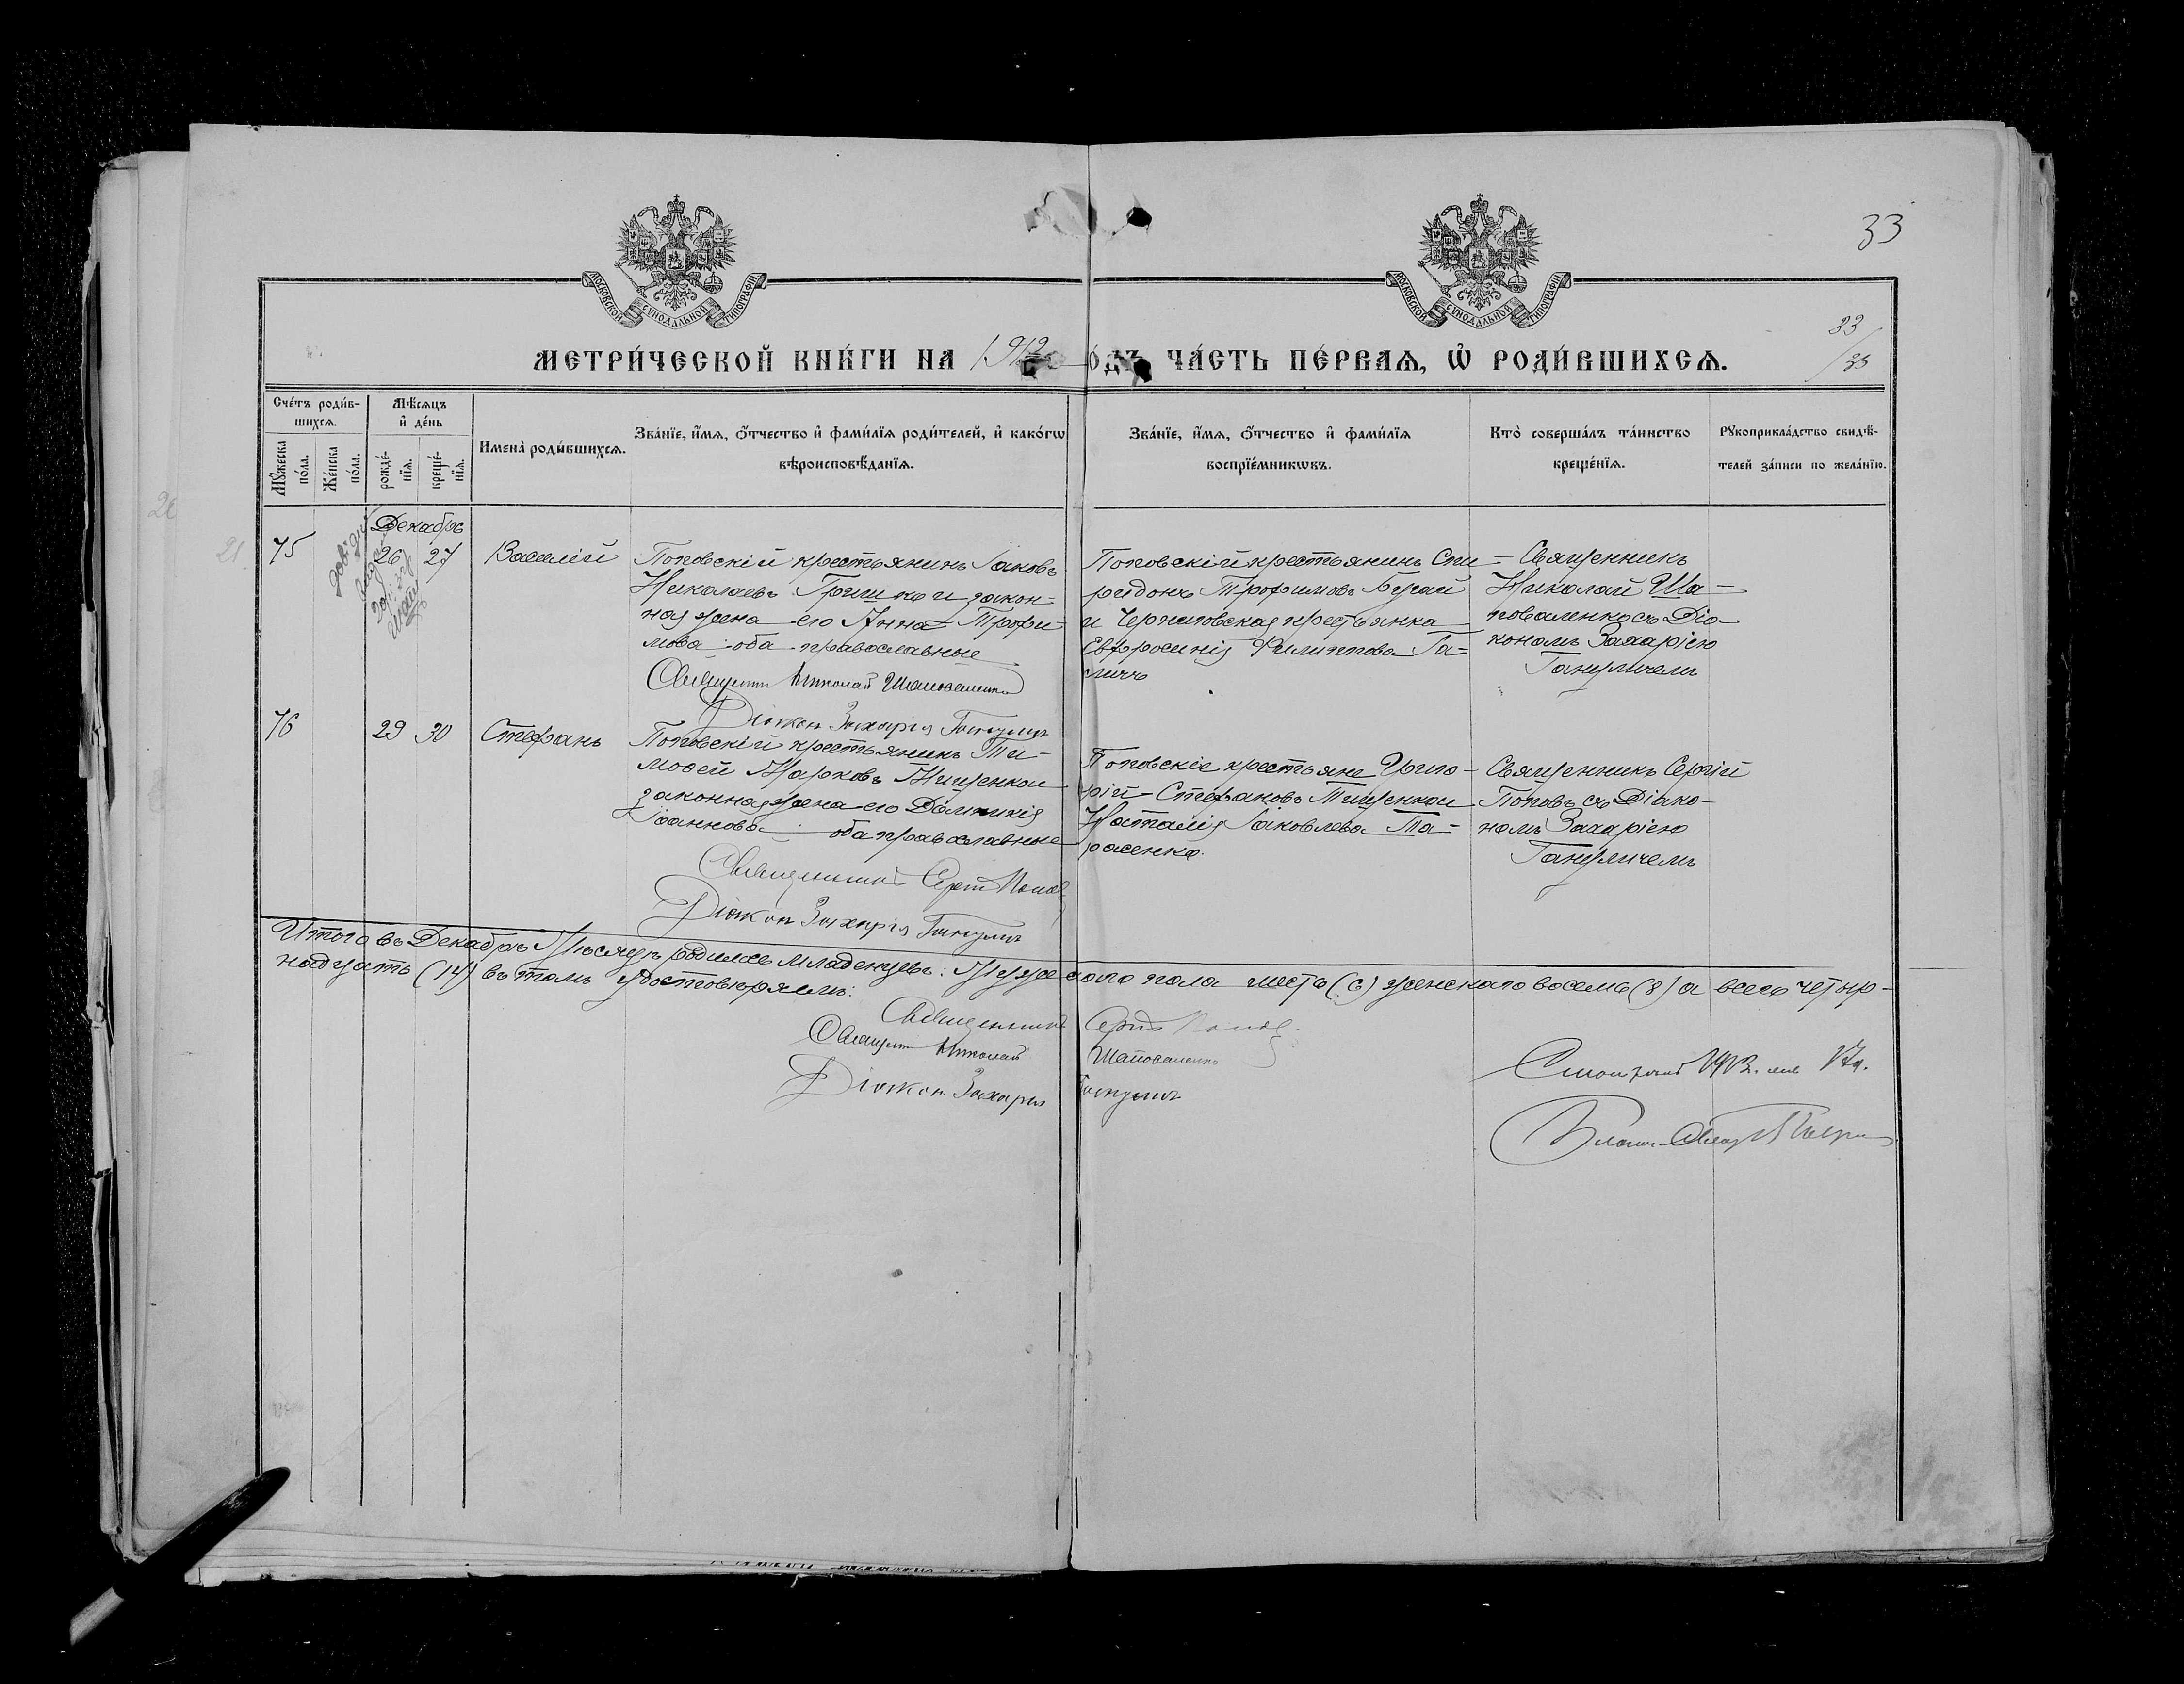 33
МОСКОВСКОЙ СУНОДАЛЬНОЙ ТИПОГРАФІИ
МОСКОВСКОЙ СУНОДАЛЬНОЙ ТИПОГРАФІИ
33/33
МЕТРИ́ЧЕСКОЙ КНИ́ГИ НА 1912 ГО́ДЪ ЧА́СТЬ ПЕ́РВАѦ, Ѡ҆ РОДИ́ВШИХСѦ.
Сче́тъ роди́в-
шихсѧ.
Мꙋ́жеска по́ла.
Же́нска по́ла.
Мѣ́сѧцъ
и҆ де́нь
рожде́-нїѧ.
креще́-нїѧ.
Имена̀ роди́вшихсѧ.
Зва́нїе, и҆́мѧ, ѻ҆́тчество и҆ фами́лїѧ роди́телей, и҆ како́гѡ
вѣроисповѣ́данїѧ.
Зва́нїе, и҆́мѧ, ѻ҆́тчество и҆ фами́лїѧ
воспрїе́мникѡвъ.
Кто̀ соверша́лъ та́инство
креще́нїѧ.
Рꙋкоприкла́дство свидѣ́-
телей за́писи по жела́нїю.
Декабрь
75
26 27
Василій
Поповскій крестьянинъ Іаковъ
Николаевъ Гришко и закон-
ная жена его Анна Трофи-
мова оба православные
Священникъ Николай Шаповаленко
Діаконъ Захарія
Поповскій крестьянинъ Спи-
ридонъ Трофимовъ Бугай
и Черниговская крестьянка
Евфросинія Филиппова Га-
личъ
Священникъ
Николай Ша-
поваленко съ Діа-
кономъ Захаріею
76
29 30
Стефанъ
Поповскій крестьянинъ Ти-
мофей Марковъ
законная жена его Домникія
Іоаннова оба православные
Священникъ Сергій Поповъ
Діаконъ Захарія
Поповскіе крестьяне Григо-
рій Стефановъ Тищенко и
Наталія Іаковлева Та-
расенко.
Священникъ Сергій
Поповъ съ Діако-
номъ Захаріею
Итого въ Декабрѣ Мѣсяцѣ родилось младенцевъ: Мужескаго пола шесть (6) женскаго восемь (8) а всего четыр-
надцать (14) въ томъ удостовѣряемъ:
Священникъ Сергій Поповъ
Священникъ Николай Шаповаленко
Діаконъ Захарія